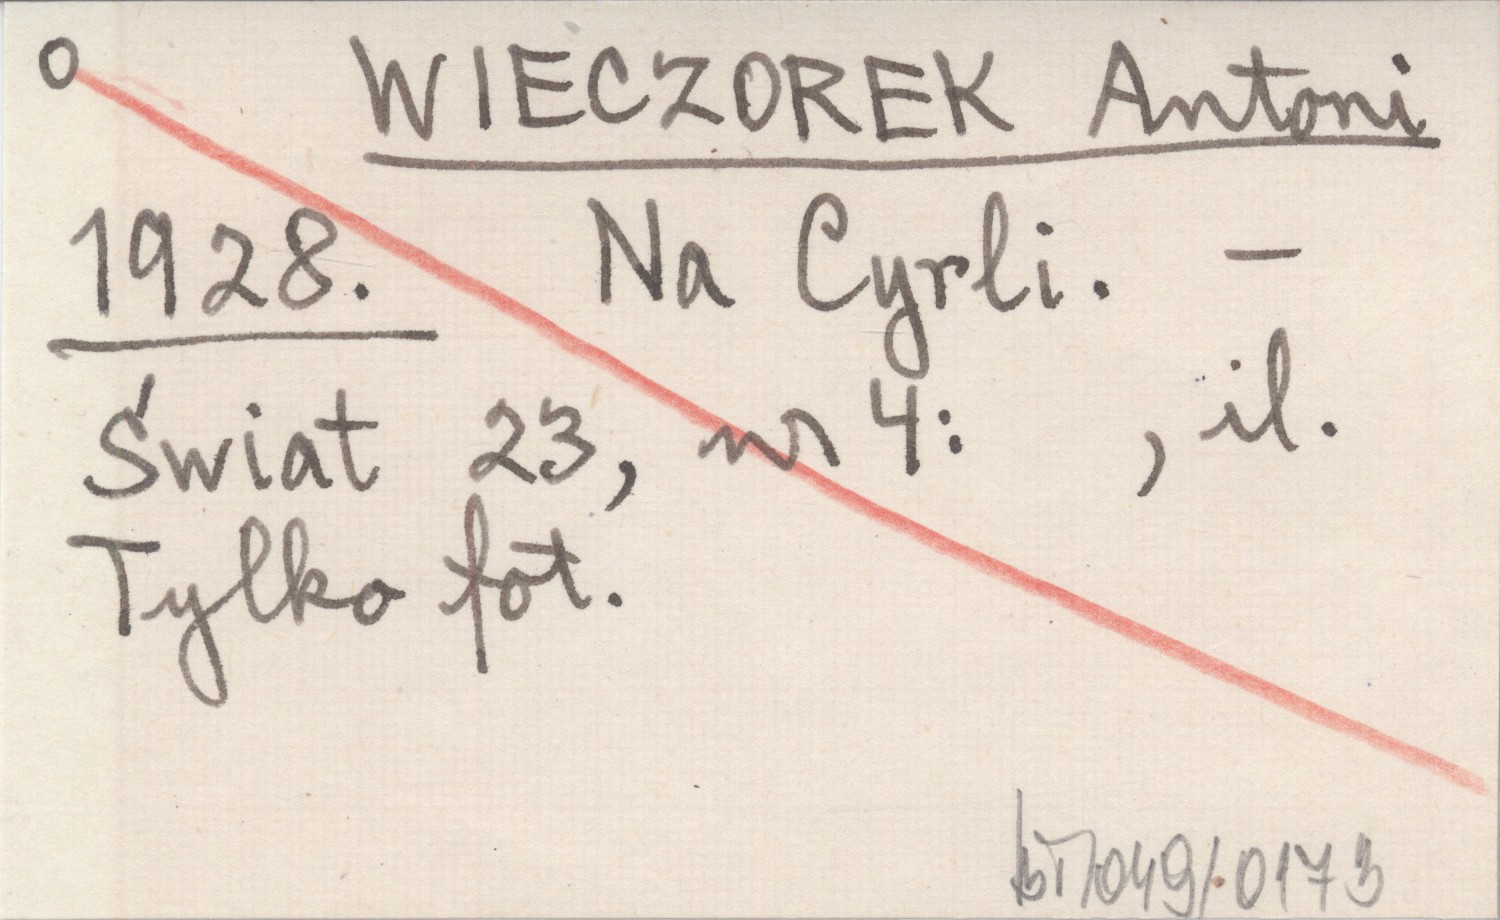 O WIECZOREK Antoni
1928. Na Cyrli. —
Świat 23, nr 4: , il.
Tylko fot.
049/0173